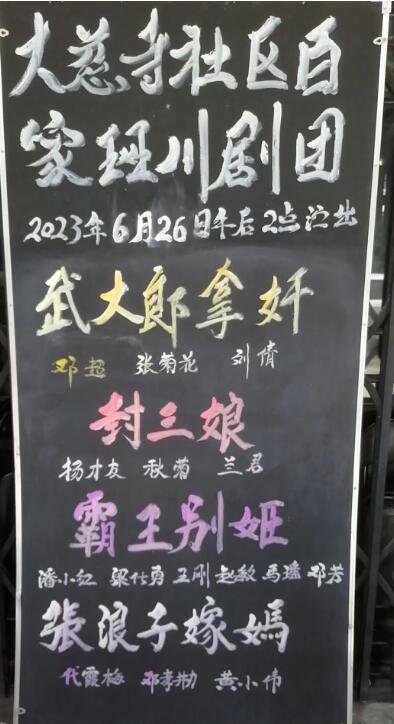 大慈寺社区百
家班川剧团
2023年6月26日午后2点演出
武大郎拿奸
邓超 张菊花 刘倩
封三娘
扬才友 秋菊 兰君
霸王别姬
潘小红 梁仕勇 王刚 赵敏 马遥 邓芳
張浪子嫁媽
代霞梅 邓孝勋 黄小伟